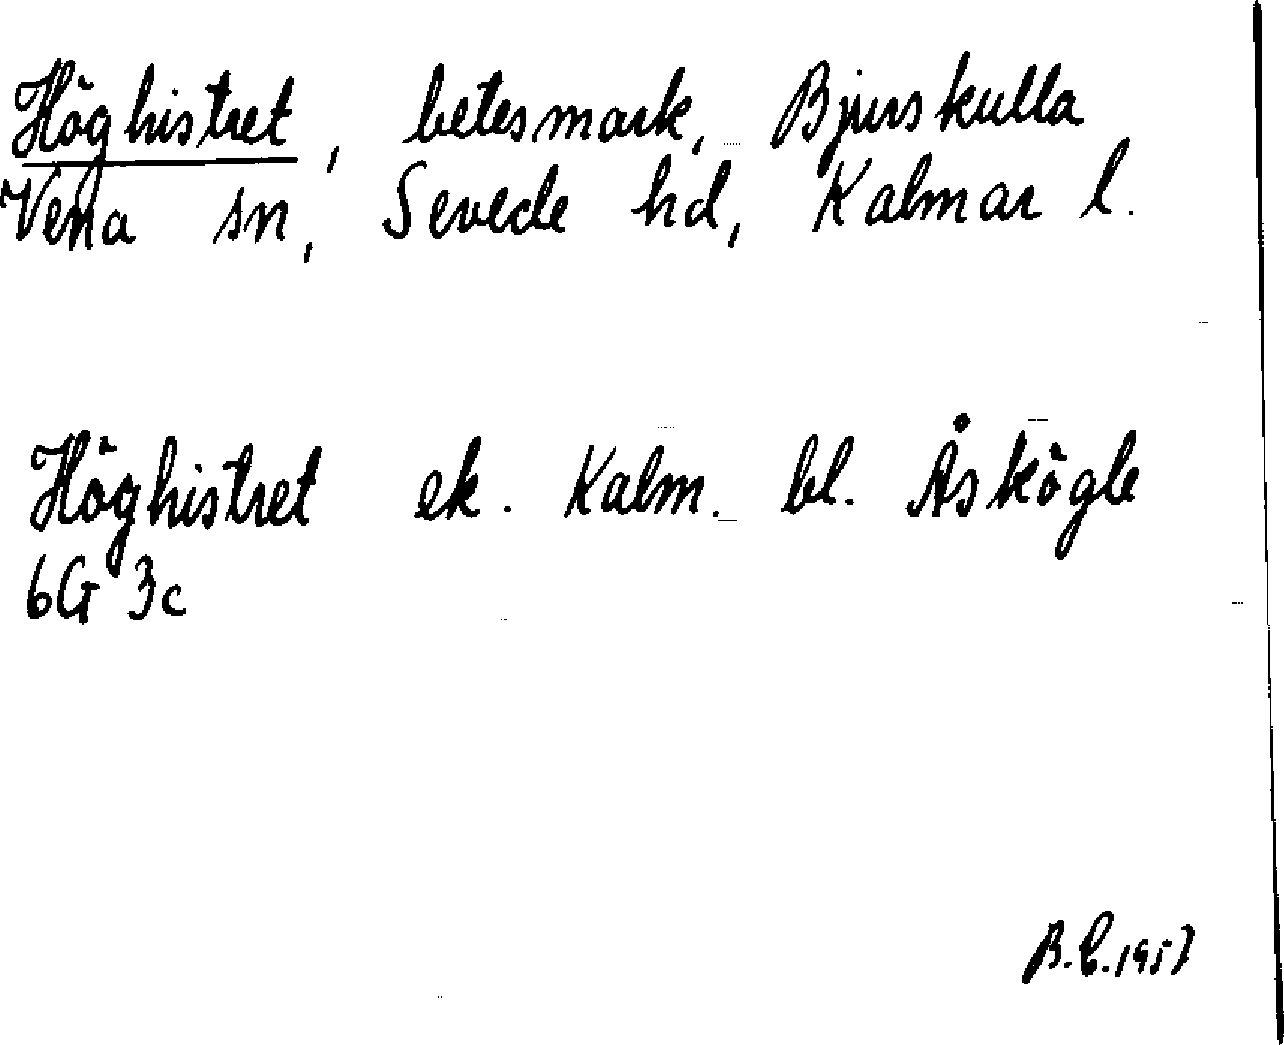 Höghistret, betesmark, Bjurskulla
Vena sn, Sevede hd, Kalmar l.
Höghistret ek. Kalm. bl. Åskögle
6G 3c
B.E.1957